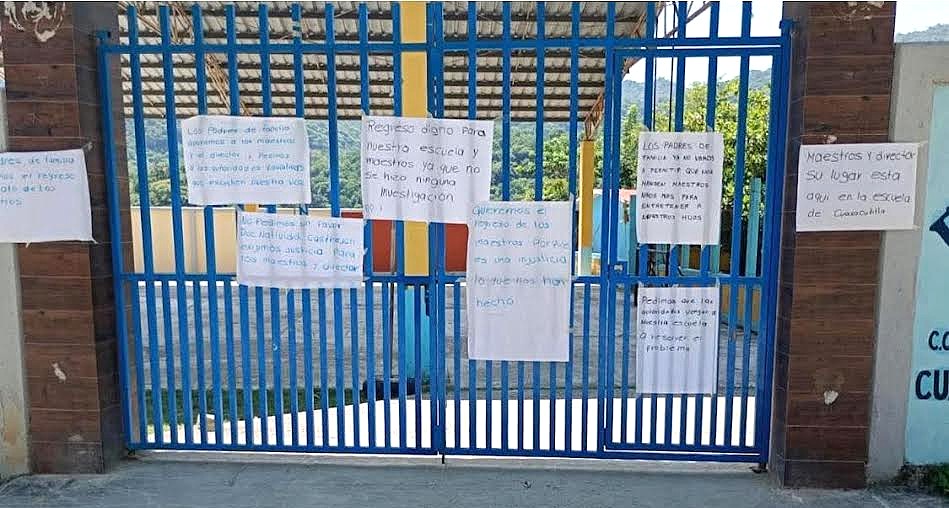 dres de familia
mos el regrese
ato de los
Los Padres de familia
queremos a los maestros
y al director y Pedimos
a las autoridades Educativas
que escuchen nuestra voz
No Pedimos un favor
Doc. Natividad Castrejon
exigimos Justicia Para
los maestros y director
Regreso digno Para
nuestra escuela y
maestros ya que no
se hizo ninguna
Investigacion
Queremos el
regreso de los
maestros Porque
es una injusticia
lo que nos han
hecho
LOS PADRES DE
FAMILIA YA NO VAMOS
A PERMITIR QUE NOS
MANDEN MAESTROS
NADA MAS PARA
ENTRETENER A
NUESTROS HIJOS
Pedimos que las
autoridades vengan a
Nuestra escuela
a resolver el
problema
Maestros y director
su lugar esta
aqui en la escuela
de Cuaxocutila
C.C
CU